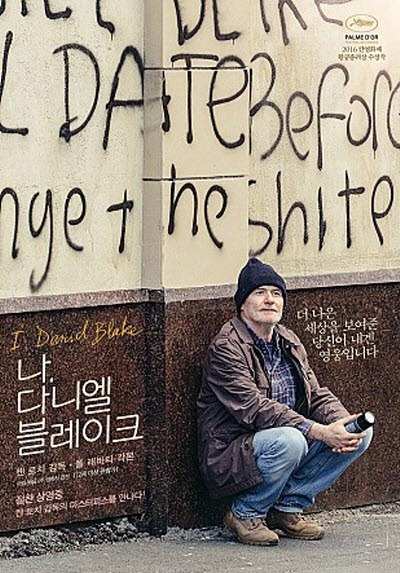 PALME D'OR
2016 칸영화제
황금종려상 수상작
DATE Before
nge + he shite
더 나은
세상을 보여준
당신이 내겐
영웅입니다
I Daniel Blake
나,
다니엘
블레이크
켄 로치 감독 · 폴 래버티 각본
절찬 상영중
켄 로치 감독의 마스터피스를 만나다!